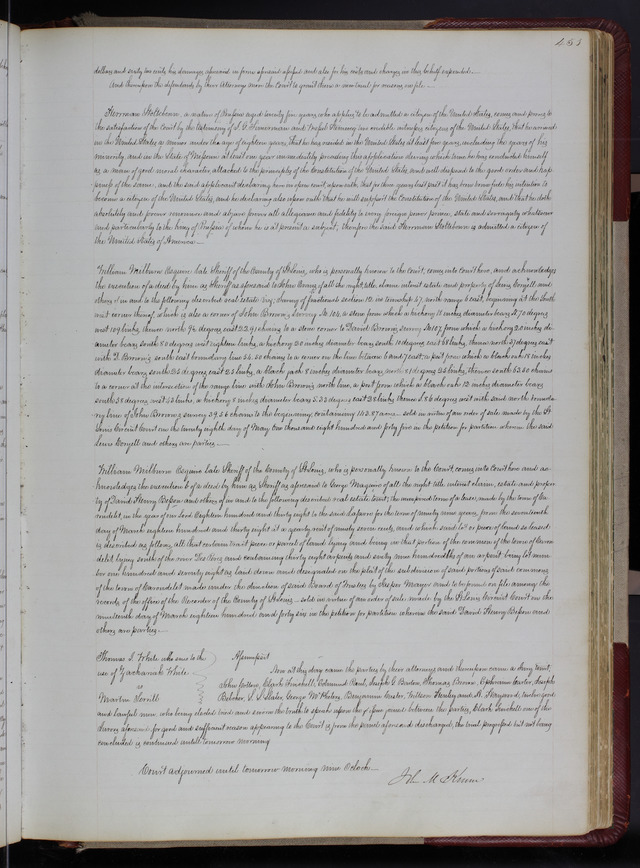 453
dollars and sixty two cents his damages aforesaid in form aforesaid assessed and also for his costs and charges in this behalf expended.
And thereupon the defendants by their Attorneys move the Court to grant them a new trial for reasons on file.
Herrman a native of Prussia aged twenty five years, who applies to be admitted a citizen of the United States, comes and proves to
the satisfaction of the Court by the testimony of and two credible witnesses, citizens of the United States, that he arrived
in the United States a minor under the age of eighteen years, that he has resided in the United States at least five years, including the years of his
minority, and in the State of Missouri at least one year immediately preceding this application, during which time he has conducted himself
as a man of good moral character attached to the principles of the Constitution of the United States, and well disposed to the good order and hap
piness of the same, and the said applicant declaring here in open court, upon oath, that for three years last past it has been bona fide his intention to
become a citizen of the United States, and he declaring also upon oath that he will support the Constitution of the United States, and that he doth
absolutely and forever renounce and abjure forever all allegiance and fidelity to every foreign power, prince, state and sovereignty whatsoever
and particularly to the King of Prussia of whom he is at present a subject, therefore the said Herrman is admitted a citizen of
the United States of America.
William Milburn Esquire late Sheriff of the County of St Louis, who is personally known to the Court, comes into Court here, and acknowledges
the execution of a deed by him as Sheriff as aforesaid to John of all the right, title, claim, interest estate and property of Lewis Coryell and
others of in and to the following described real estate viz: Survey of fractional section 12. in township 47. north range 6 east, beginning at the South
west corner thereof, which is also a corner of John Brown's survey No 106, a stone from which a hickory 18 inches diameter bears S 70 degrees
west 109 links, thence north 72 degrees east 22.91 chains to a stone corner to David Brown's survey No 107, from which a hickory 20 inches di-
ameter bears south 80 degrees west eighteen links, a hickory 20 inches diameter bears south 10 degrees east 68 links, thence north 37 degrees east
with D. Brown's south east boundary line 54.50 chains to a corner on the line between 6 and 7 east, a post from which a black oak 18 inches
diameter bears south 35 degrees east 25 links, a black jack 8 inches diameter bears north 51 degrees 95 links, thence south 63.50 chains
to a corner at the intersection of the range line with John Brown's north line, a post from which a black oak 12 inches diameter bears
south 58 degrees west 55 links, a hickory 8 inches diameter bears S. 35 degrees east 28 links, thence S. 86 degrees west with said north bounda
ry line of John Brown's survey 59.56 chains to the beginning, containing 143.87 acres. sold in virtue of an order of sale made by the St
Louis Circuit Court on the twenty eighth day of May one thousand eight hundred and forty five in the petition for partition wherein the said
Lewis Coryell and others are parties.
William Milburn Esquire late Sheriff of the County of St Louis, who is personally known to the Court, comes into Court here and ac-
knowledges the execution of a deed by him as Sheriff as aforesaid to George Maguire of all the right title, interest claim, estate and proper
ty of David Henry and others of in and to the following described real estate to wit, the unexpired term of a lease, made by the town of Ca
rondelet, in the year of our Lord Eighteen hundred and thirty eight to the said for the term of ninety nine years, from the seventeenth
day of March eighteen hundred and thirty eight at a yearly rent of ninety seven cents, and which said lot or piece of land so leased
is described as follows, all that certain tract piece or parcel of land lying and being in that portion of the commons of the town of Caron
delet lying south of the river Des Peres and containing thirty eight arpents and sixty nine hundredths of an arpent being lot num
ber one hundred and seventy eight as laid down and designated on the plat of the subdivision of said portion of said commons
of the town of Carondelet made under the direction of said Board of Trustees by Jasper Mayer and to be found on file among the
records of the office of the Recorder of the County of St Louis – sold in virtue of an order of sale made by the St Louis Circuit Court on the
nineteenth day of March eighteen hundred and forty six in the petition for partition wherein the said David Henry and
others are parties.
Thomas J. White who sues to the
use of Zachariah White
vs
Martin
Assumpsit
Now at this day came the parties by their attorneys and thereupon came a Jury to wit,
John Clark Edmund Paul, Joseph C. Barlow, Thomas Brown, Ephraim Carter, Joseph
Belcher, George Benjamin Wilson and A. Hayward, twelve good
and lawful men, who being elected tried and sworn the truth to speak upon the issue joined between the parties, Clark one of the
Jurors aforesaid for good and sufficient reason appearing to the Court is from the panel aforesaid discharged, the trial progressed but not being
concluded is continued until tomorrow morning
Court adjourned until tomorrow morning nine Oclock.
John M. Krum